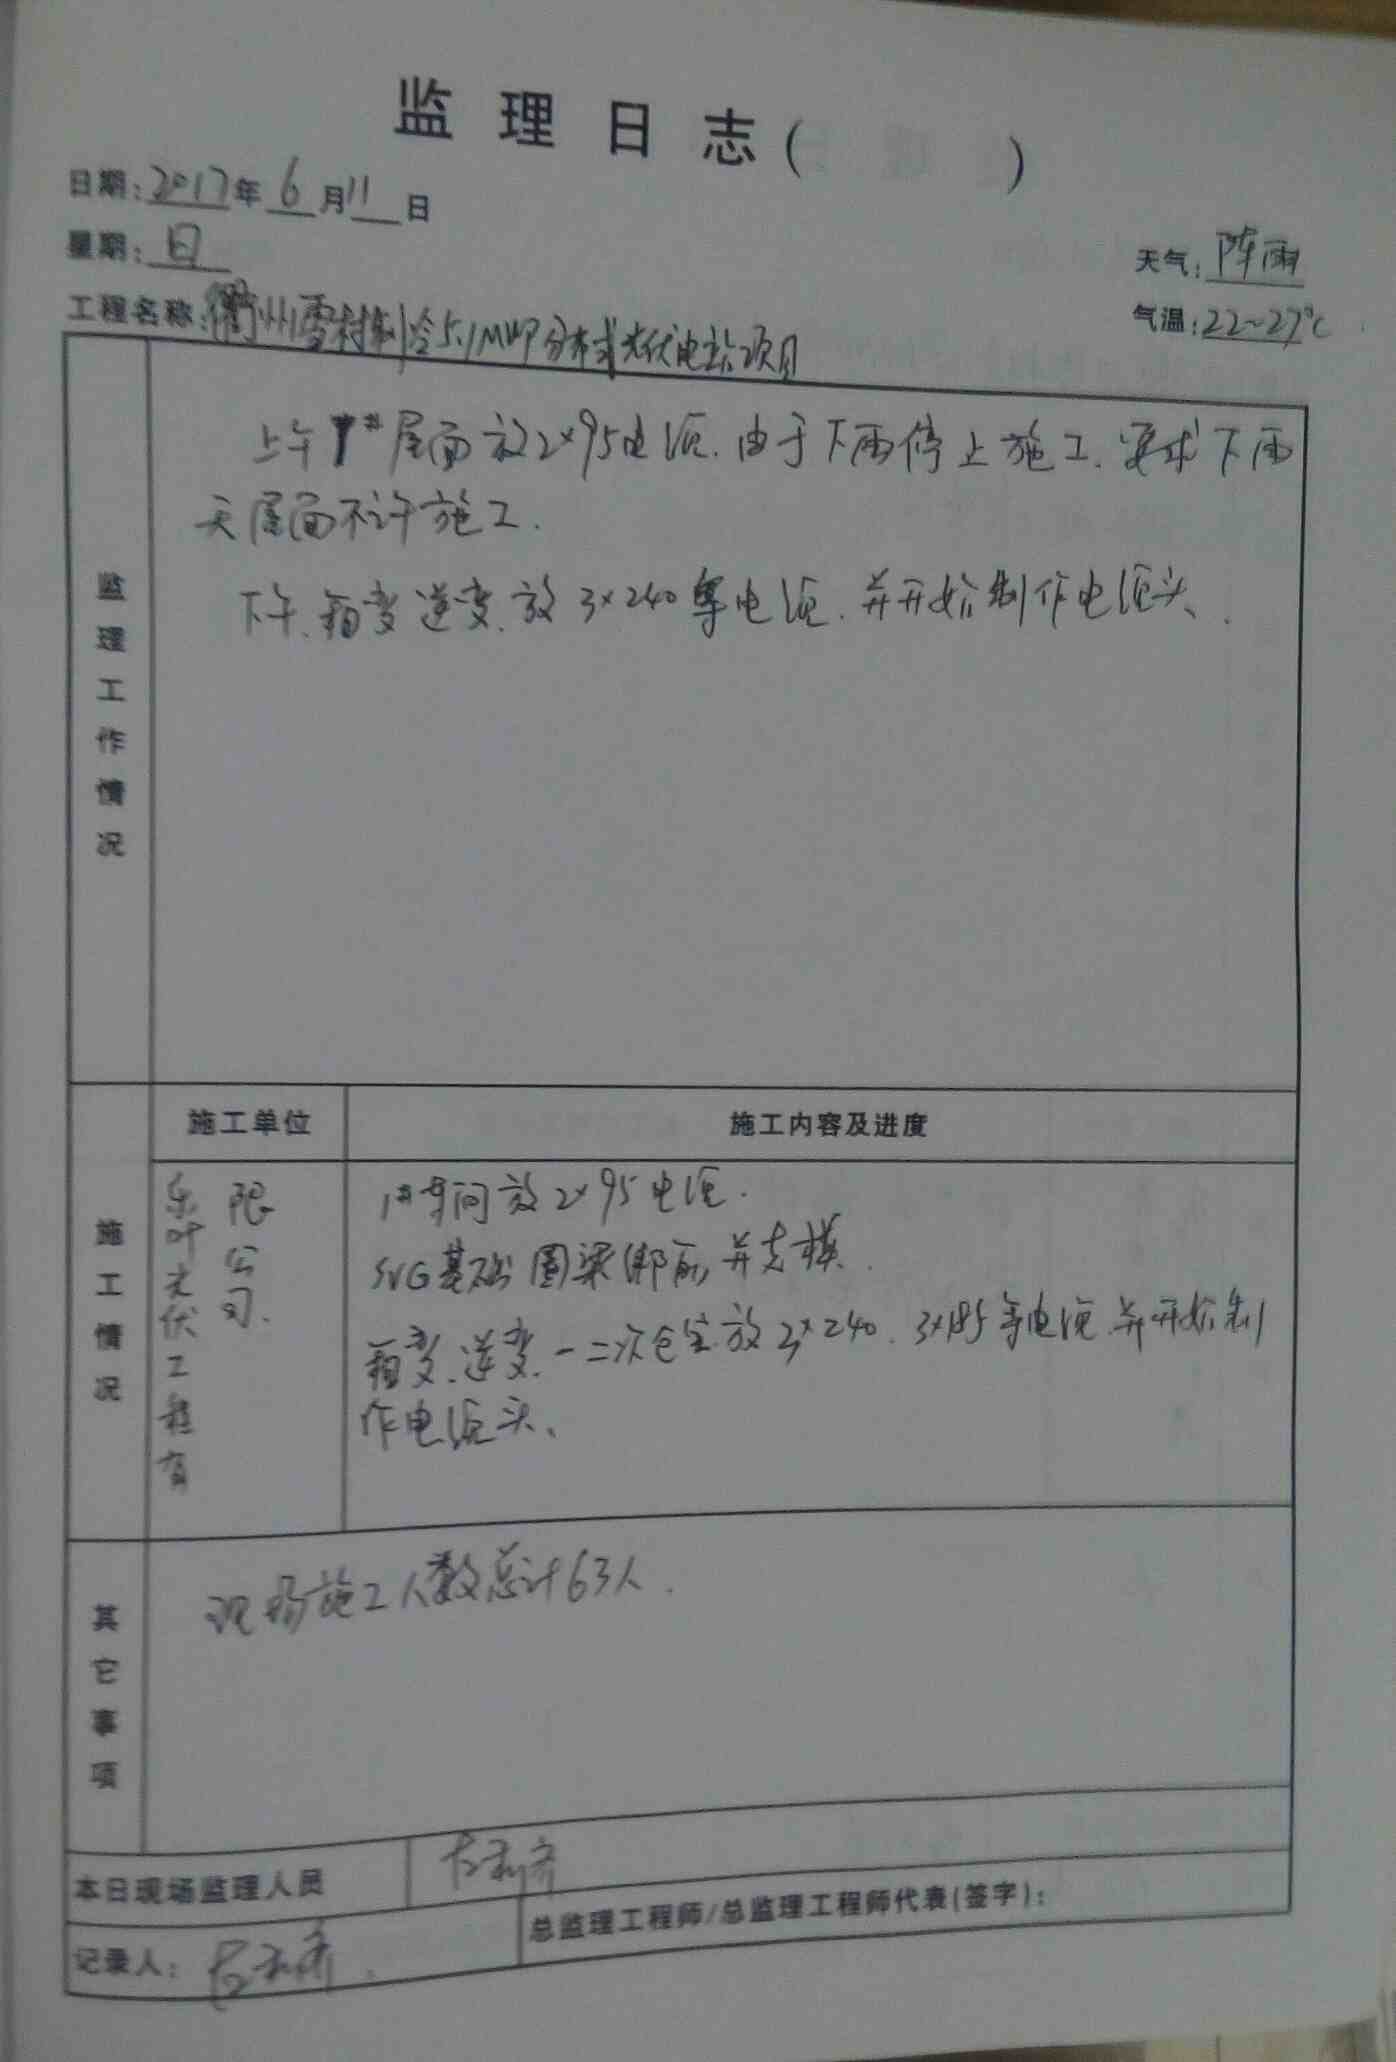 监理日志( )
日期:2017年6月11日
星期:日
天气:阵雨
工程名称:衢州雪村制冷5.1MWP分布式光伏电站项目
气温:22~27℃
监理工作情况
上午1#屋面放2×95电缆.由于下雨停止施工.要求下雨
天屋面不许施工.
下午.箱变逆变.放3×240等电缆.并开始制作电缆头、.
施工单位
施工内容及进度
施工情况
乐叶光伏工程有
限公司.
1#车间放2×95电缆.
SVG基础圈梁绑扎并支模.
箱变.逆变.一二次仓室.放3×240.3×185等电缆.并开始制
作电缆头、
其它事项
现场施工人数总计63人.
本日现场监理人员
记录人:
总监理工程师/总监理工程师代表(签字):